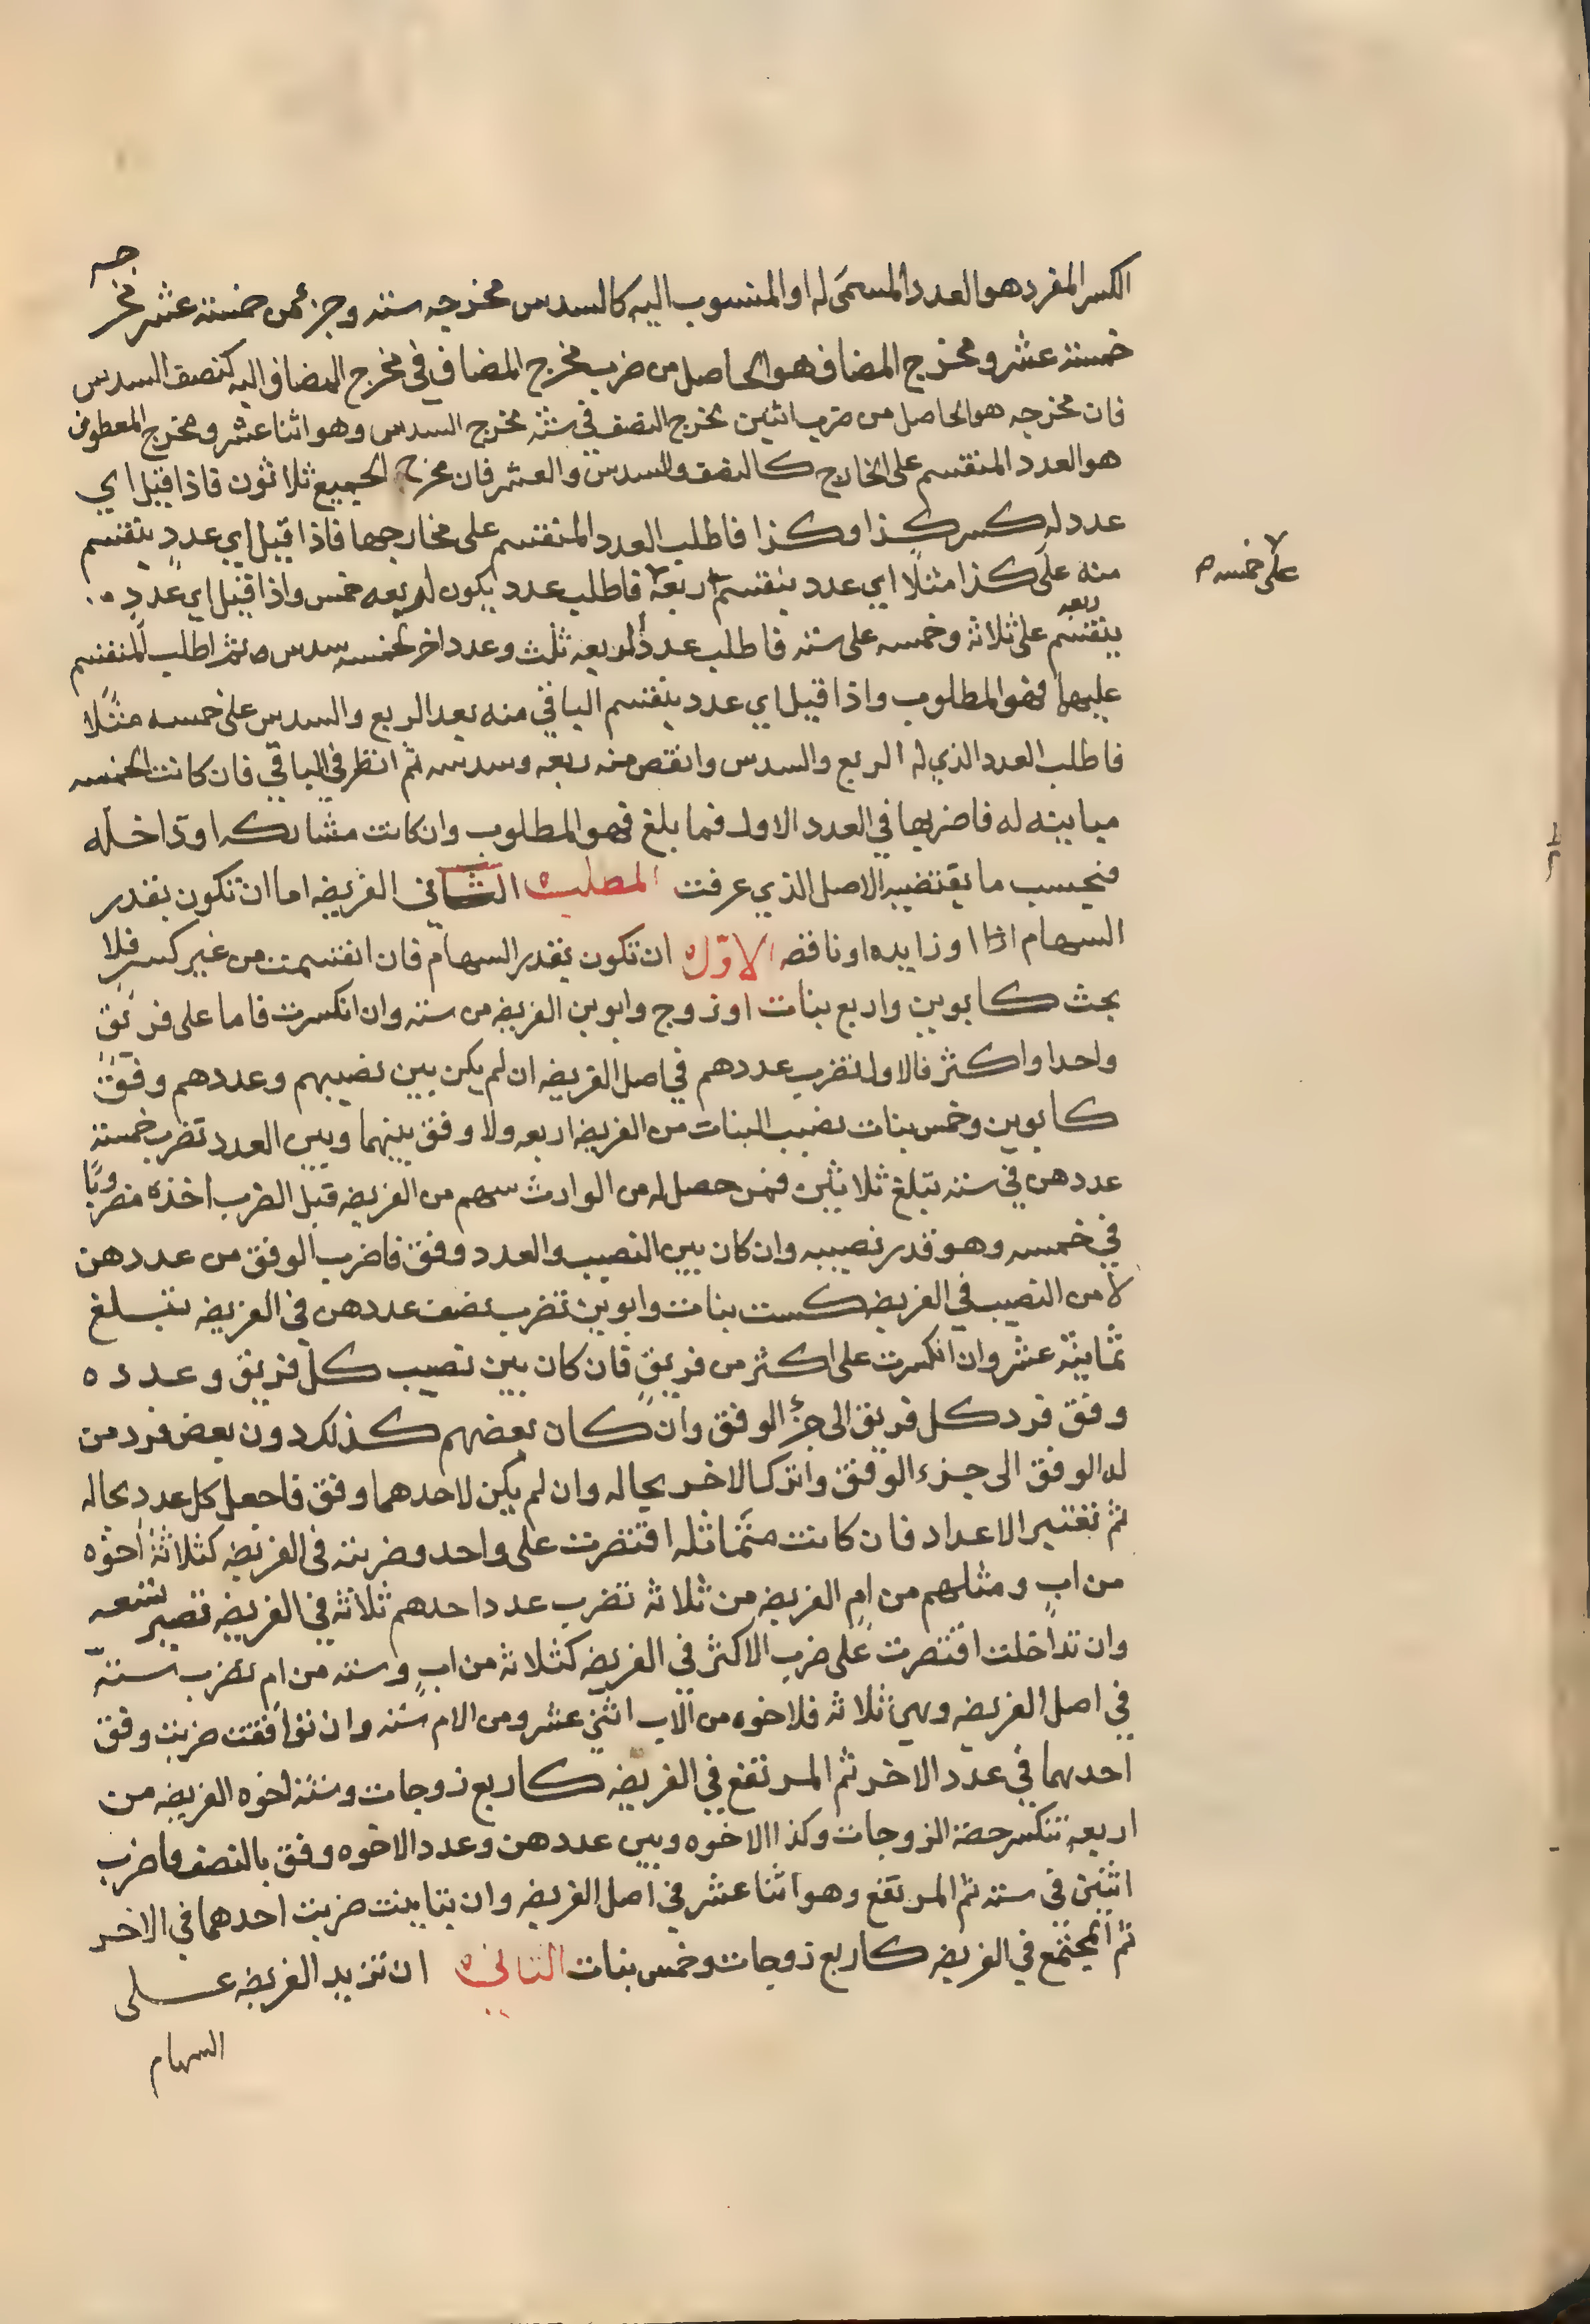 الكسر المفرد هو العدد المسمى له او المنسوب اليه كالسدس مخرجه سته وجزء من خمسة عشر مخرجه
خمسة عشر ومخرج المضاف هو الحاصل من ضرب مخرج المضاف في مخرج المضاف اليه كنصف السدس
فان مخرجه هو الحاصل من ضرب اثنين مخرج النصف في ستة مخرج السدس وهو اثنا عشر ومخرج المعطوف
هو العدد المنقسم على الخارج كالنصف والسدس والعشر فان مخرج الجميع ثلاثون فاذا قيل اي
عدد له كسر كذا وكذا فاطلب العدد المنقسم على مخارجها فاذا قيل اي عدد ينقسم
منه على كذا مثلا اي عدد ينقسم اربعة فاطلب عدد يكون لربعه خمس واذا قيل اي عدد
على خمسه
ينقسم ربعه على ثلاثه وخمسه على سته فاطلب عددا لربعه ثلث وعدد اخر لخمسه سدس ثم اطلب المنقسم
عليهما فهو المطلوب واذا قيل اي عدد ينقسم الباقي منه بعد الربع والسدس على خمسه مثلا
فاطلب العدد الذي له الربع والسدس وانقص منه ربعه وسدسه ثم انظر في الباقي فان كانت الخمسه
مباينه له فاضربها في العدد الاول فما بلغ فهو المطلوب وان كانت مشاركه او تداخله
فبحسب ما يقتضيه الاصل الذي عرفت المطلب الثاني الفريضه اما ان تكون بقدر
السهام او زايده او ناقصه الاول ان تكون بقدر السهام فان انقسمت من غير كسر فلا
بحث كابوين واربع بنات او زوج وابوين الفريضه من سته وان انكسرت فاما على فريق
واحد او اكثر فالاول تضرب عددهم في اصل الفريضه ان لم يكن بين نصيبهم وعددهم وفق
كابوين وخمس بنات نصيب البنات من الفريضه اربعه ولا وفق بينهما وبين العدد تضرب خمسة
عددهن في سته تبلغ ثلاثين فمن حصل له من الوارث سهم من الفريضه قبل الضرب اخذه مضروبا
في خمسه وهو قدر نصيبه وان كان بين النصيب والعدد وفق فاضرب الوفق من عددهن
لا من النصيب في الفريضه كست بنات وابوين تضرب نصف عددهن في الفريضه تبلغ
ثمانية عشر وان انكسرت على اكثر من فريق فان كان بين نصيب كل فريق وعدده
وفق فرد كل فريق الى جزء الوفق وان كان بعضهم كذلك دون بعض فرد من
له الوفق الى جزء الوفق واترك الاخر بحاله وان لم يكن لاحدهما وفق فاجعل كل عدد بحاله
ثم تعتبر الاعداد فان كانت متماثله اقتصرت على واحد وضربته في الفريضه كثلاثة اخوه
من اب ومثلهم من ام الفريضه من ثلاثه تضرب عدد احدهم ثلاثة في الفريضه تصير تسعه
وان تداخلت اقتصرت على ضرب الاكثر في الفريضه كثلاثه من اب وسته من ام تضرب ستة
في اصل الفريضه وهي ثلاثه فللاخوه من الاب اثني عشر ومن الام سته وان توافقت ضربت وفق
احدهما في عدد الاخر ثم المرتفع في الفريضه كاربع زوجات وسته اخوه الفريضه من
اربعه تنكسر حصة الزوجات وكذا الاخوه وبين عددهن وعدد الاخوه وفق بالنصف فاضرب
اثنين في سته ثم المرتفع وهو اثنا عشر في اصل الفريضه وان تباينت ضربت احدهما في الاخر
ثم المجتمع في الفريضه كاربع زوجات وخمس بنات الثاني ان تزيد الفريضه على
السهام